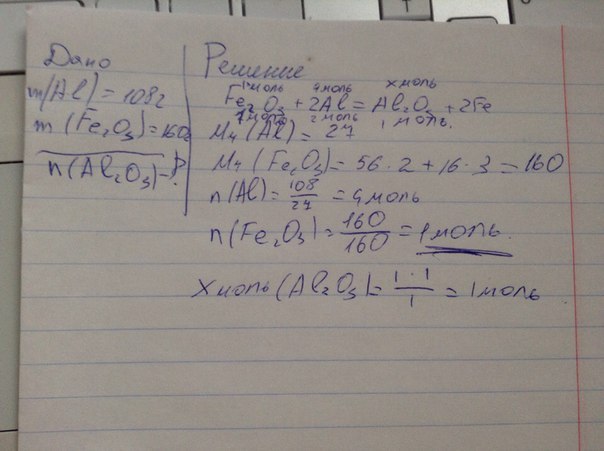 Дано
m(Al) = 108г
m(Fe₂O₃) = 160г
n(Al₂O₃) - ?
Решение
1 моль 4 моль x моль
Fe₂O₃ + 2Al = Al₂O₃ + 2Fe
1 моль 2 моль 1 моль.
Mч(Al) = 27
Mч(Fe₂O₃) = 56 · 2 + 16 · 3 = 160
n(Al) = 108/27 = 4 моль
n(Fe₂O₃) = 160/160 = 1 моль.
x моль (Al₂O₃) = 1 · 1/1 = 1 моль